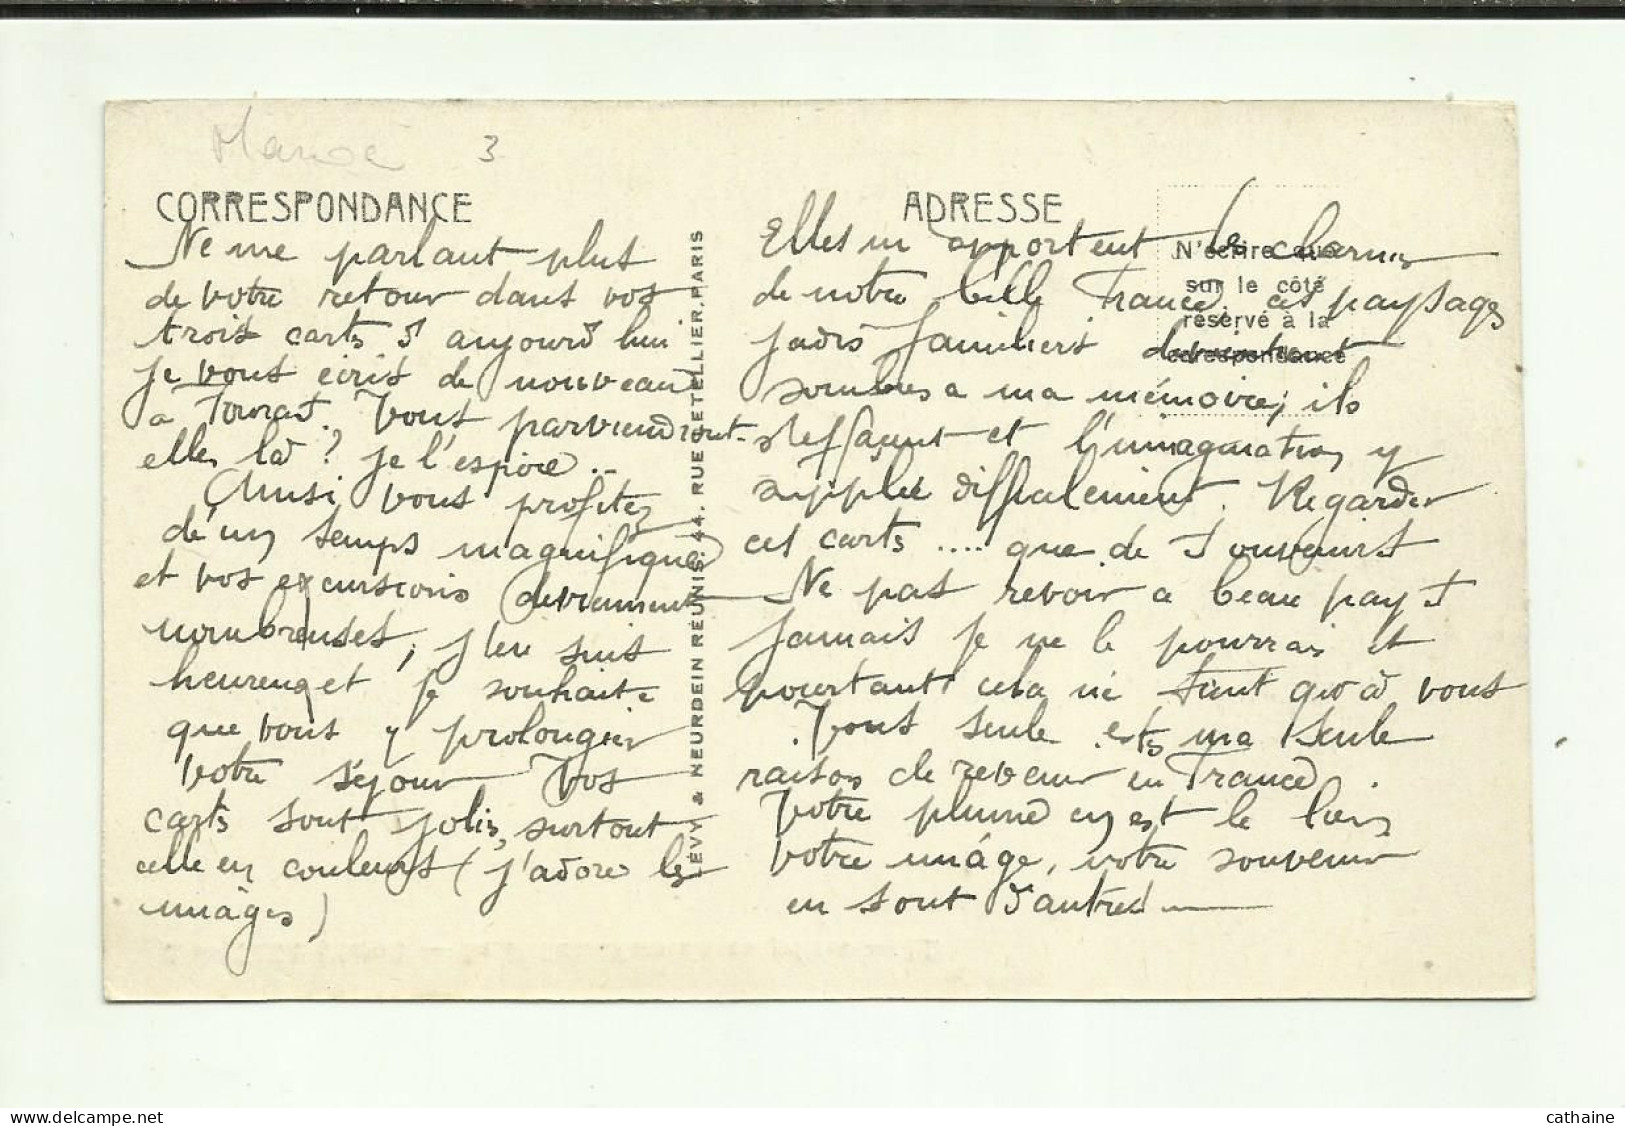 Maroc 3
CORRESPONDANCE
Ne me parlant plus
de votre retour dans vos
trois carts d'aujourd hui
je vous écris de nouveau
à . Vous parviendront-
elles là ? je l'espère...
Ainsi vous profitez
d'un temps magnifique
et vos excursions deviennent
nombreuses, j'en suis
heureux et je souhaite
que vous y prolongier
votre séjour Vos
carts sont jolis, surtout
celle en couleurs (j'adore les
images)
LÉVY & NEURDEIN RÉUNIS. 44. RUE LETELLIER. PARIS
ADRESSE
N'écrire que
sur le côté
réservé à la
correspondance
Elles m apportent le charme
de notre belle France, ces paysages
jadis familiers deviennent
sombres a ma mémoire, ils
s'effaçent et l'imagination y
supplée difficilement. Regarder
ces carts .... que de souvenirs
Ne pas revoir ce beau pays
jamais je ne le pourrais et
pourtant cela ne tient qu'à vous
Vous seule ets ma seule
raison de revenir en France.
Votre plume en est le lien
votre image, votre souvenir
en sont d'autres
cathaine